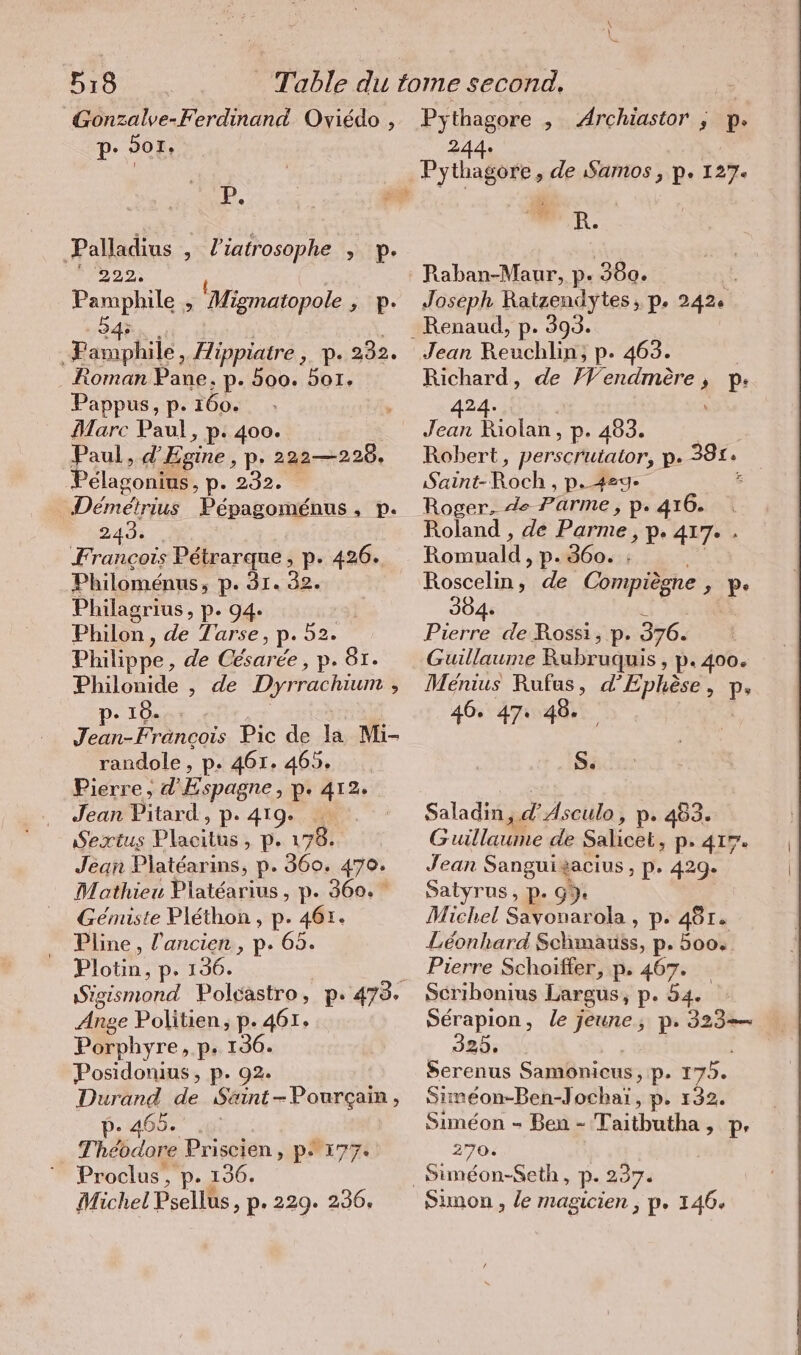 518 Table du tome second.
Gonzalve-Ferdinand Oviédo,
p. 501.
P.
Palladius , l'iatrosophe , p.
222.
Pamphile , Migmatopole , p.
54.
Pamphile, Hippiatre, p. 232.
Roman Pane, p. 500. 501.
Pappus, p. 160.
Marc Paul, p. 400.
Paul, d'Egine, p. 222—228.
Pélagonius, p. 232.
Démétrius Pépagoménus, p.
243.
François Pétrarque, p. 426.
Philoménus, p. 31. 32.
Philagrius, p. 94.
Philon, de Tarse, p. 52.
Philippe, de Césarée, p. 81.
Philonide , de Dyrrachium ,
p. 18.
Jean-François Pic de la Mi-
randole, p. 461. 465.
Pierre, d'Espagne, p. 412.
Jean Pitard, p. 419.
Sextus Placitus, p. 178.
Jean Platéarins, p. 360. 470.
Mathieu Platéarius, p. 360.
Gémiste Pléthon, p. 461.
Pline, l'ancien, p. 65.
Plotin, p. 136.
Sigismond Polcastro, p. 473.
Ange Politien, p. 461.
Porphyre, p. 136.
Posidonius, p. 92.
Durand de Saint-Pourçain,
p. 465.
Théodore Priscien, p. 177.
Proclus, p. 136.
Michel Psellus, p. 229. 236.
Pythagore , Archiastor , p.
244.
Pythagore, de Samos, p. 127.
R.
Raban-Maur, p. 380.
Joseph Raizendytes, p. 242.
Renaud, p. 393.
Jean Reuchlin, p. 463.
Richard, de Wendmère, p.
424.
Jean Riolan, p. 483.
Robert, perscrutator, p. 381.
Saint-Roch, p. 429.
Roger, de Parme, p. 416.
Roland, de Parme, p. 417.
Romuald, p. 360.
Roscelin, de Compiègne, p.
384.
Pierre de Rossi, p. 376.
Guillaume Rubruquis, p. 400.
Ménius Rufus, d'Ephèse, p.
46. 47. 48.
S.
Saladin, d'Asculo, p. 483.
Guillaume de Salicet, p. 417.
Jean Sanguinacius, p. 429.
Satyrus, p. 95.
Michel Savonarola, p. 481.
Léonhard Schmauss, p. 500.
Pierre Schoiffer, p. 467.
Scribonius Largus, p. 54.
Sérapion, le jeune, p. 323—
325.
Serenus Samonicus, p. 175.
Siméon-Ben-Jochaï, p. 132.
Siméon - Ben - Taitbutha, p.
270.
Siméon-Seth, p. 237.
Simon, le magicien, p. 146.